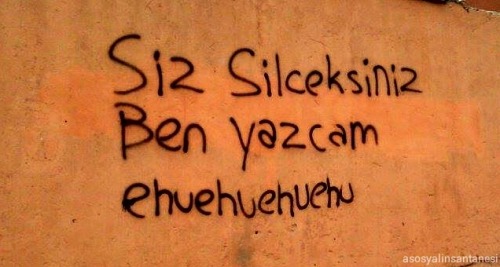 Siz Silceksiniz
Ben yazcam
ehuehuehuehu
asosyalinsantanesi